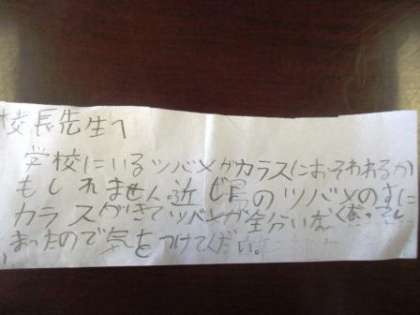 校長先生へ
学校にいるツバメがカラスにおそわれるか
もしれません。近じょのツバメのすに
カラスがきてツバメが全分いなくなってし
まったので気をつけてください。